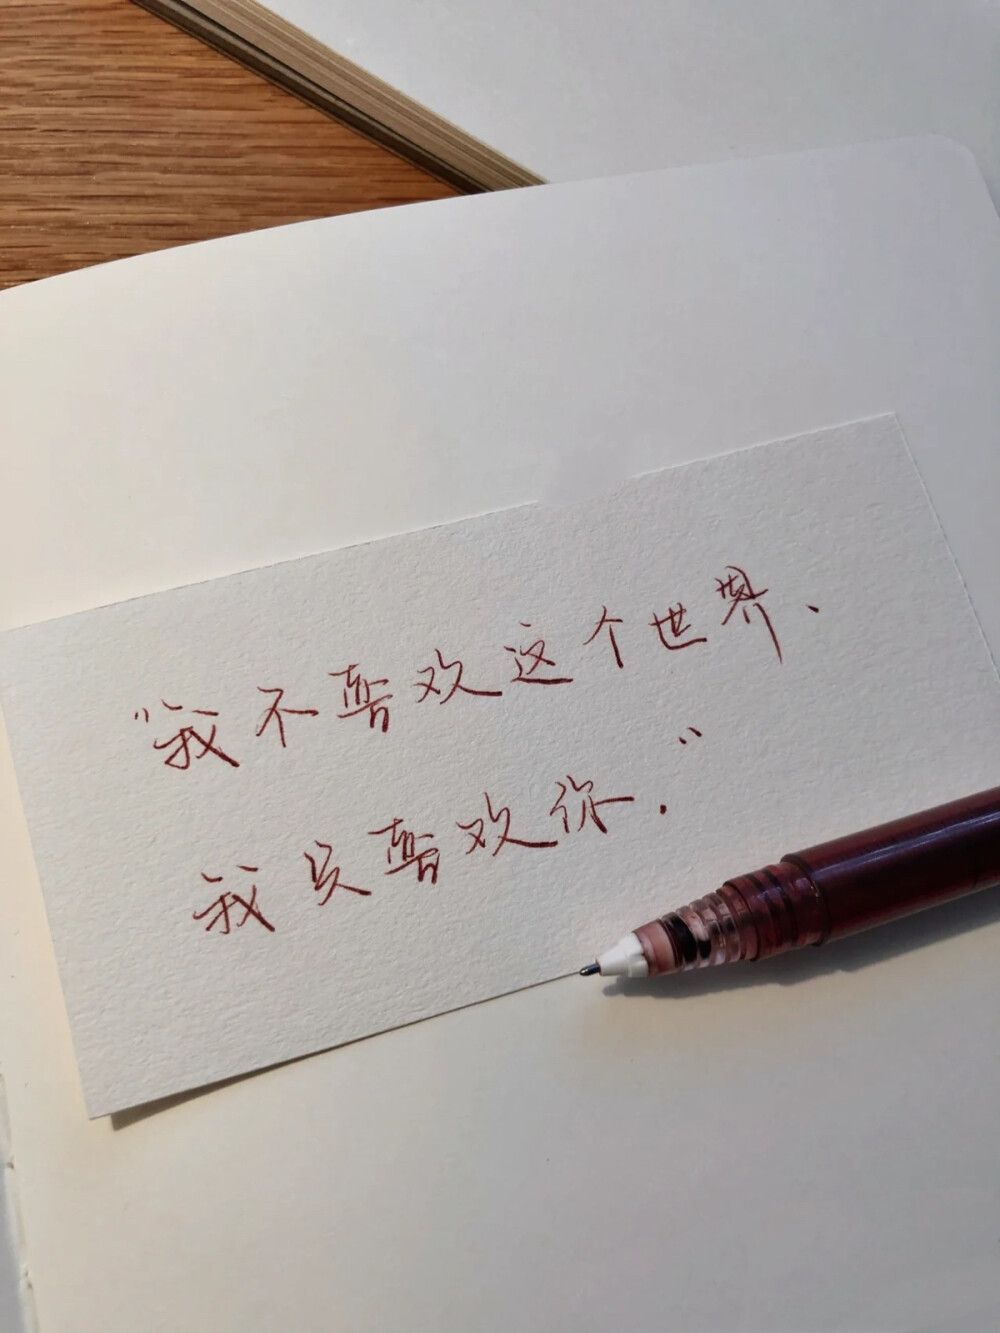 “我不喜欢这个世界、
我只喜欢你.”